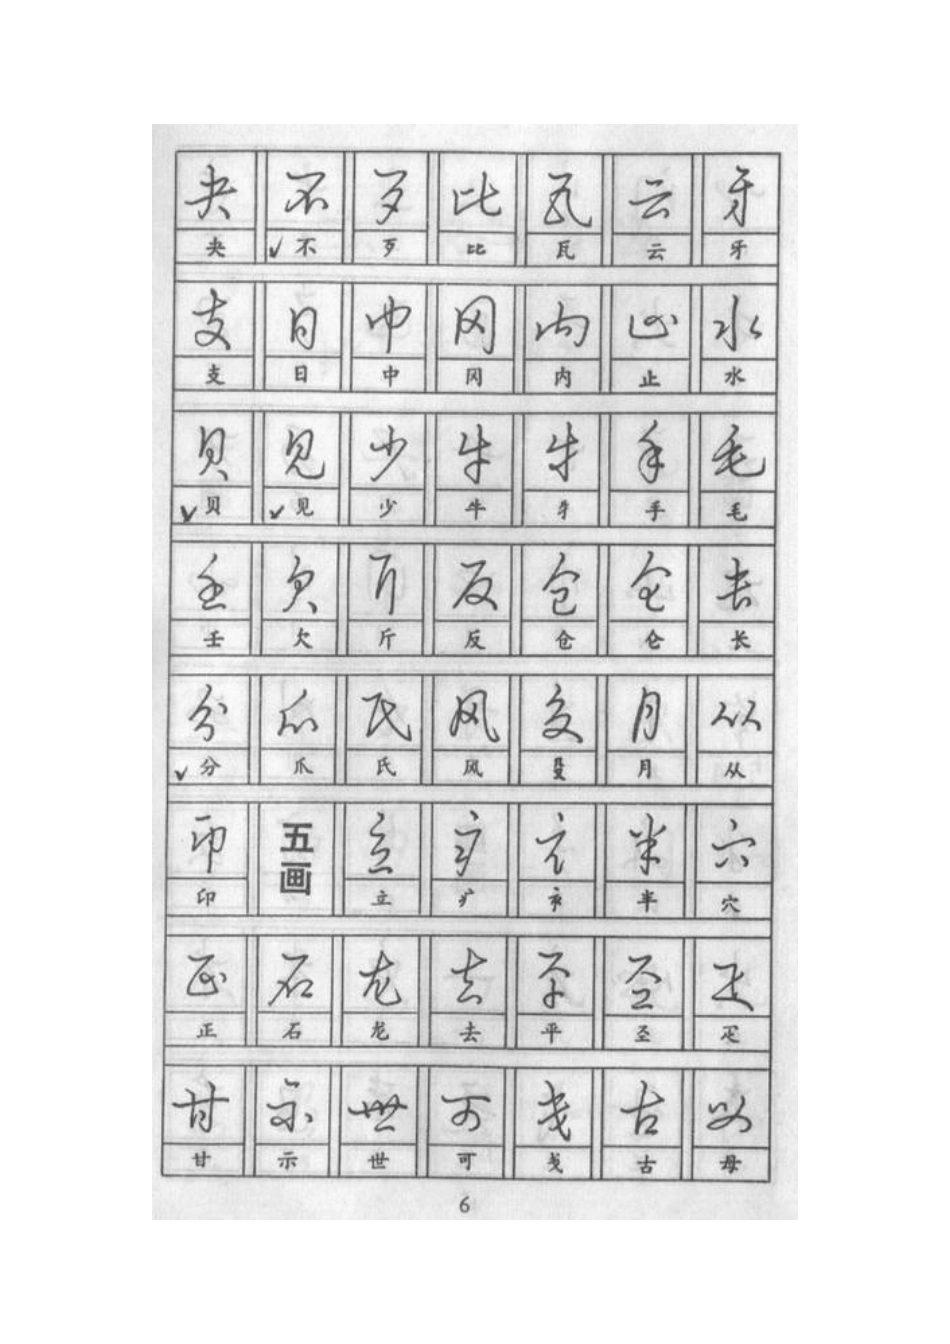 夬 不 歹 比 瓦 云 牙
夬 不 歹 比 瓦 云 牙
支 日 中 冈 内 止 水
支 日 中 冈 内 止 水
贝 见 少 牛 牛 手 毛
贝 见 少 牛 手 毛
壬 欠 斤 反 仓 仑 长
壬 欠 斤 反 仓 仑 长
分 爪 氏 风 殳 月 从
分 爪 氏 风 月 从
印 五 立 疒 半 穴
画
印 立 疒 半 穴
正 石 龙 去 平 圣 疋
正 石 龙 去 平 圣
甘 示 世 可 戋 古 母
甘 示 世 可 戋 古 母
6